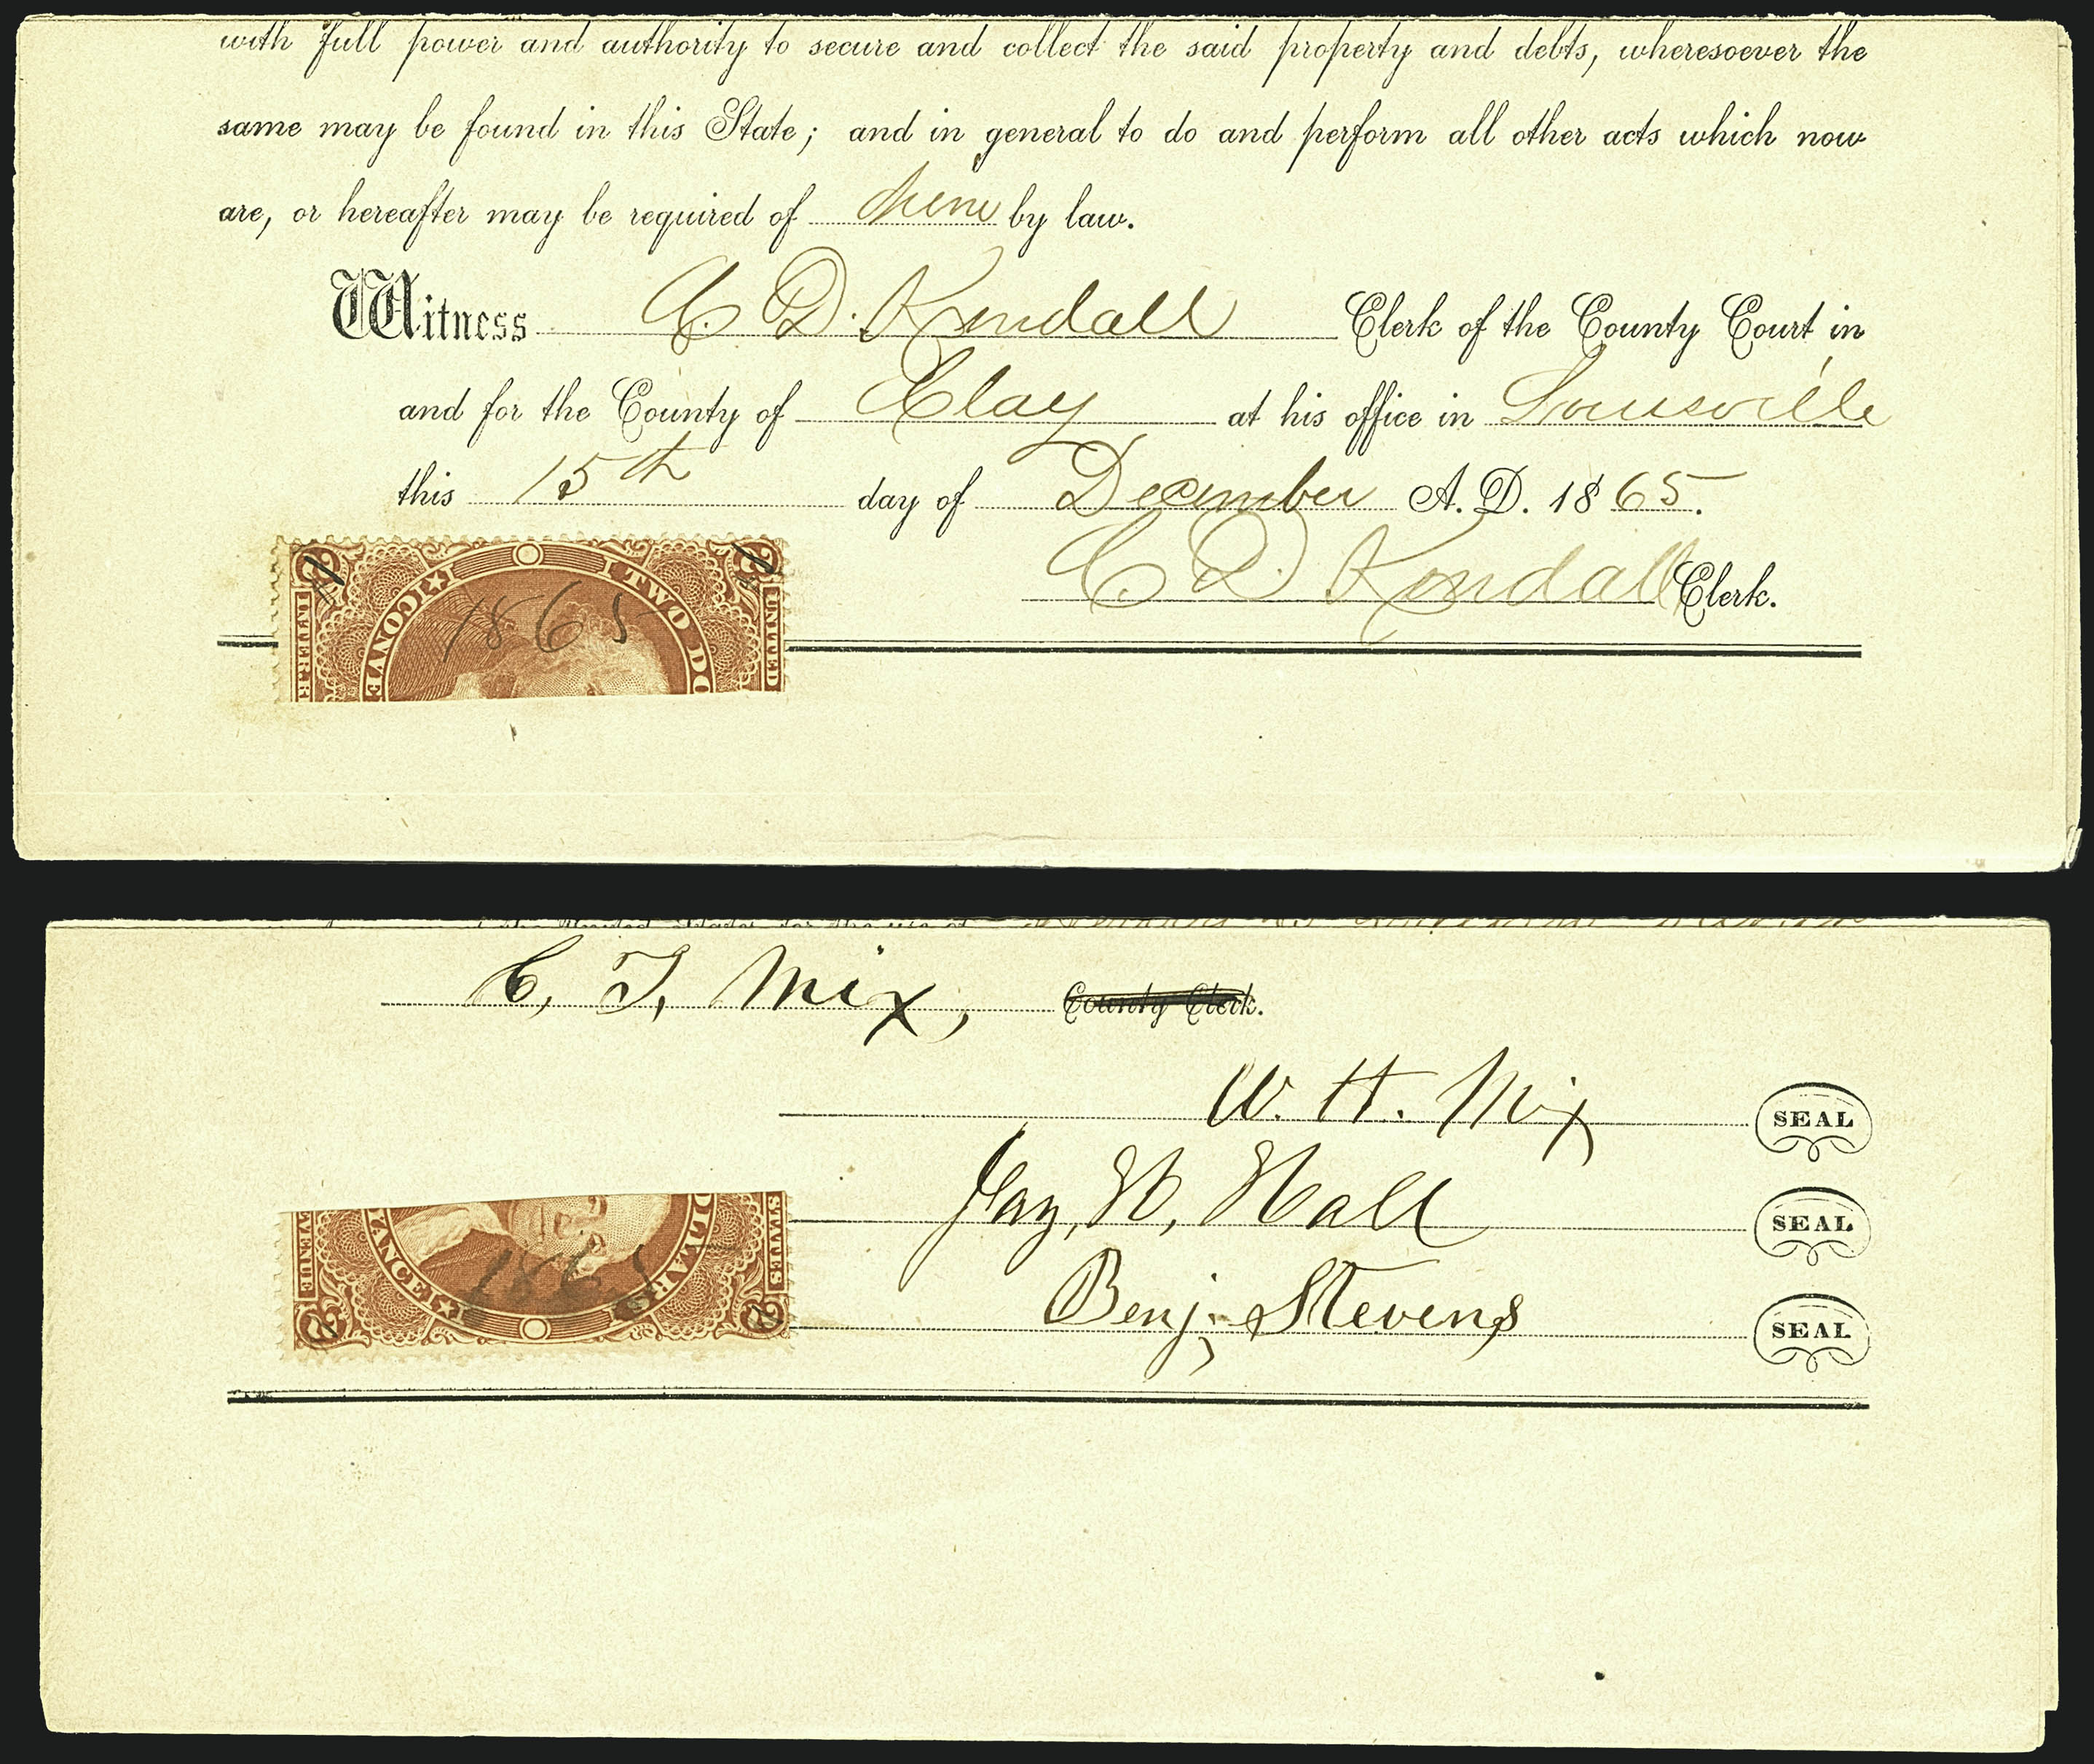 with full power and authority to secure and collect the said property and debts, wheresoever the
same may be found in this State; and in general to do and perform all other acts which now
are, or hereafter may be required of by law.
Witness C. D. Kendall Clerk of the County Court in
and for the County of Clay at his office in Louisville
this 15th day of December A. D. 1865.
C. D. Kendall Clerk.
2 I TWO DO 2
INTER REV
CONVEY
UNITED
1865
C, T, Mix, County Clerk.
W. H. Mix SEAL
Jay, H, Hall SEAL
Benj, Stevens SEAL
ANCE
OLLARS
EVENUE
STATES
1865
2 2